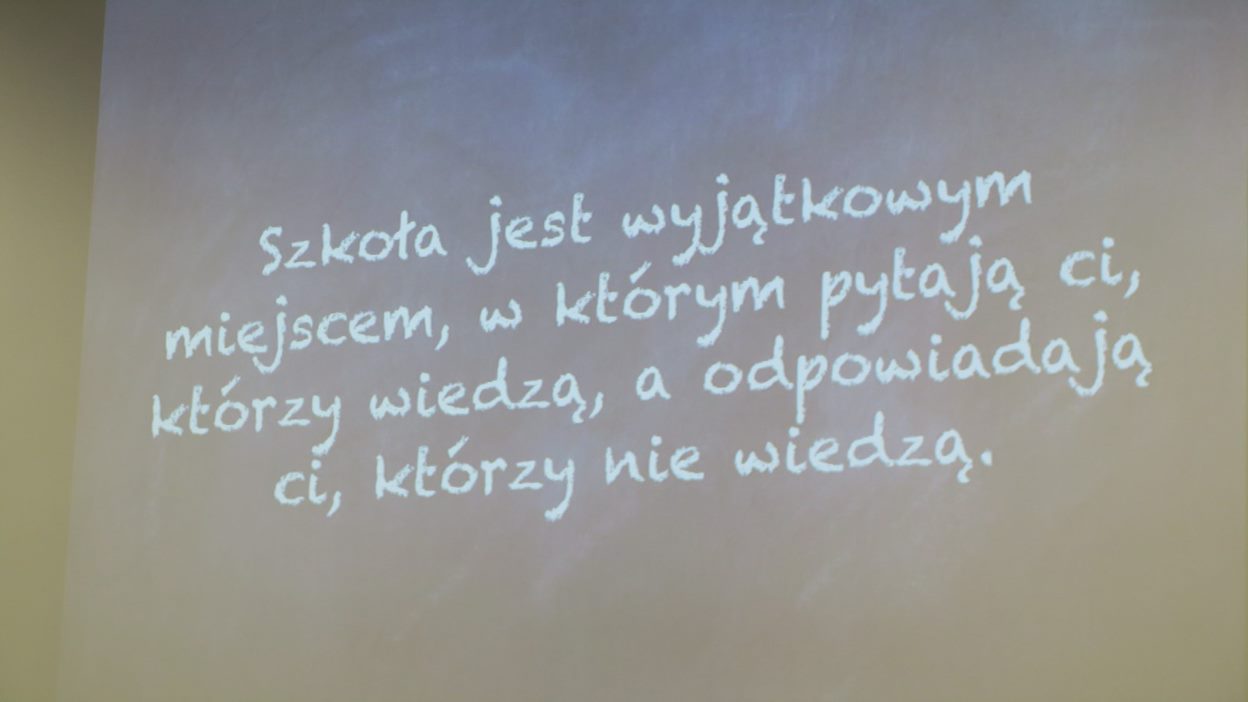 Szkoła jest wyjątkowym
miejscem, w którym pytają ci,
którzy wiedzą, a odpowiadają
ci, którzy nie wiedzą.